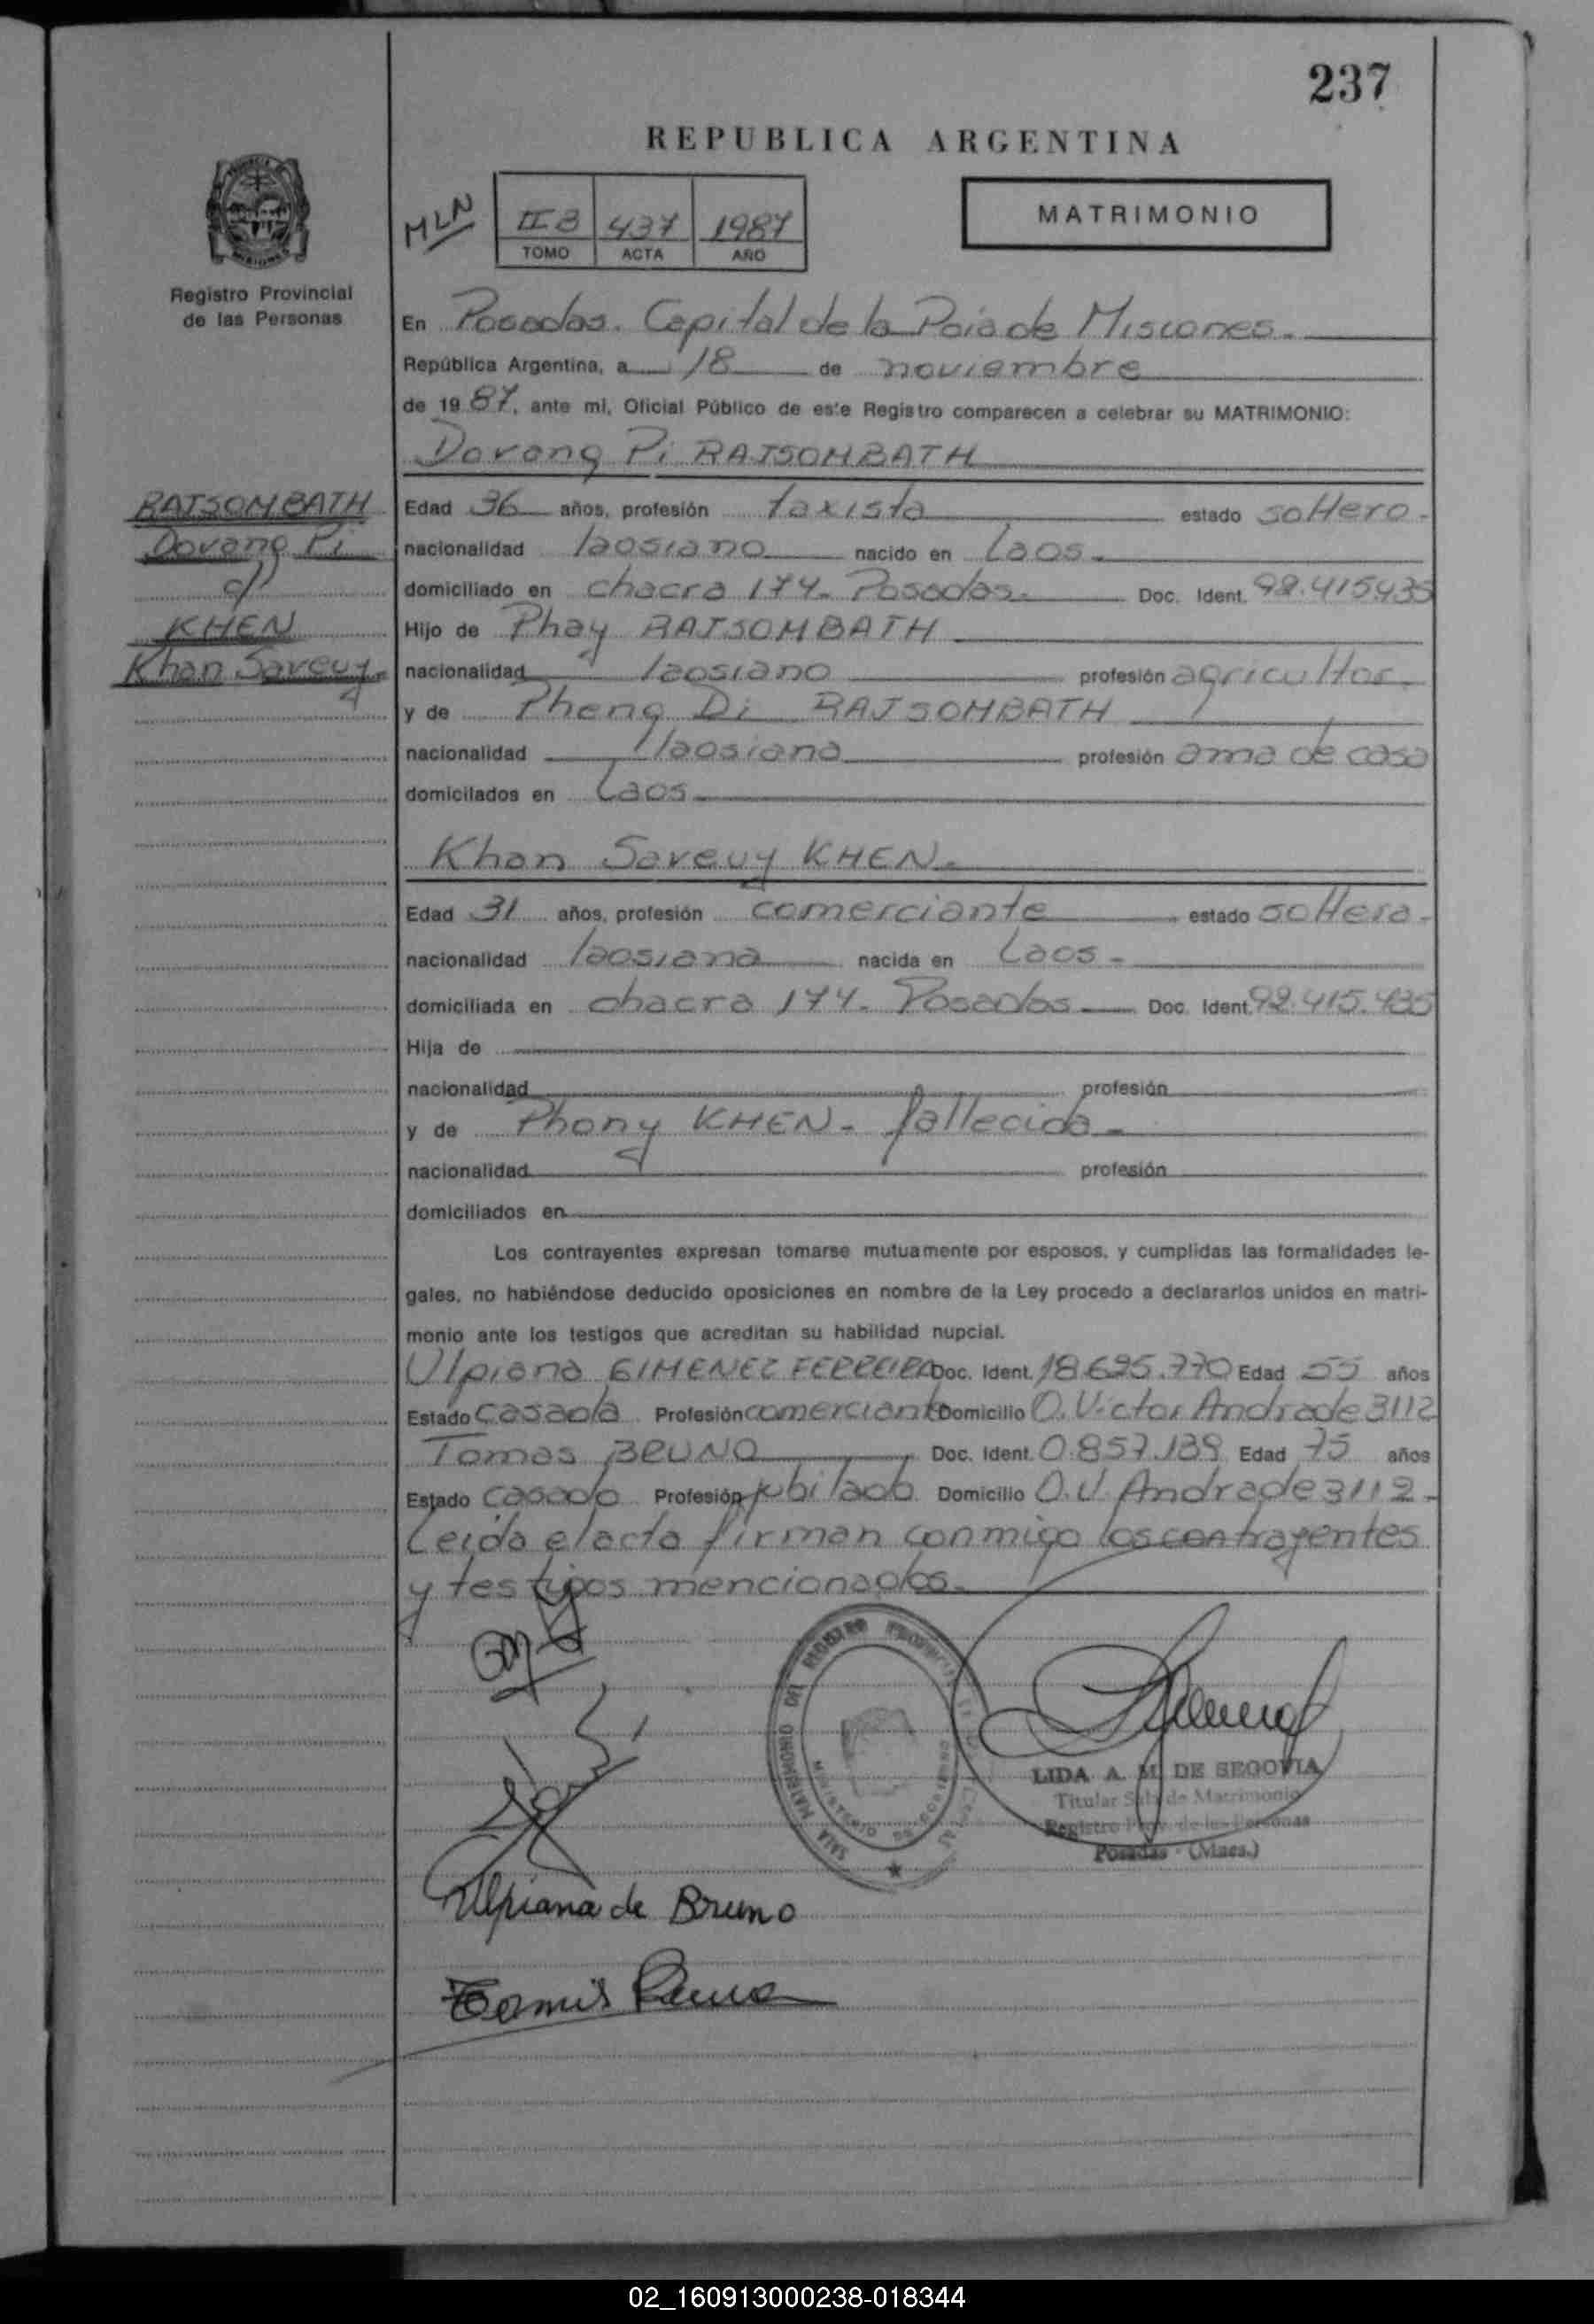 237
REPUBLICA ARGENTINA
MLN
II B 437 1987
TOMO ACTA AÑO
MATRIMONIO
Registro Provincial
de las Personas
En Posadas. Capital de la Pcia de Misiones.
República Argentina, a 18 de noviembre
de 1987, ante mí, Oficial Público de este Registro comparecen a celebrar su MATRIMONIO:
Dovang Pi RAJSOMBATH
RAJSOMBATH
Dovang Pi
c/
KHEN
Khan Saveuy
Edad 36 años, profesión taxista estado soltero.
nacionalidad laosiano nacido en Laos.
domiciliado en chacra 174. Posadas. Doc. Ident. 92.415.435
Hijo de Phay RAJSOMBATH
nacionalidad laosiano profesión agricultor.
y de Pheng Di RAJSOMBATH
nacionalidad laosiana profesión ama de casa
domicilados en Laos
Khan Saveuy KHEN.
Edad 31 años, profesión comerciante estado soltera.
nacionalidad laosiana nacida en Laos.
domiciliada en chacra 174. Posadas Doc. Ident. 92.415.435
Hija de
nacionalidad profesión
y de Phony KHEN. fallecida.
nacionalidad profesión
domiciliados en
Los contrayentes expresan tomarse mutuamente por esposos, y cumplidas las formalidades le-
gales, no habiéndose deducido oposiciones en nombre de la Ley procedo a declararlos unidos en matri-
monio ante los testigos que acreditan su habilidad nupcial.
Ulpiana GIMENEZ FERREIRA Doc. Ident. 18.695.770 Edad 55 años
Estado casada Profesión comerciante Domicilio O. Victor Andrade 3112
Tomas BRUNO Doc. Ident. 0.857.139 Edad 75 años
Estado casado Profesión jubilado Domicilio O.V. Andrade 3112.
Leida el acta firman conmigo los contrayentes
y testigos mencionados.
SALA MATRIMONIO DEL REGISTRO
MINISTERIO DE GOBIERNO
LIDA A. M. DE SEGOVIA
Titular Sala de Matrimonio
Registro Prov. de las Personas
Posadas - (Mnes.)
Ulpiana de Bruno
02_160913000238-018344